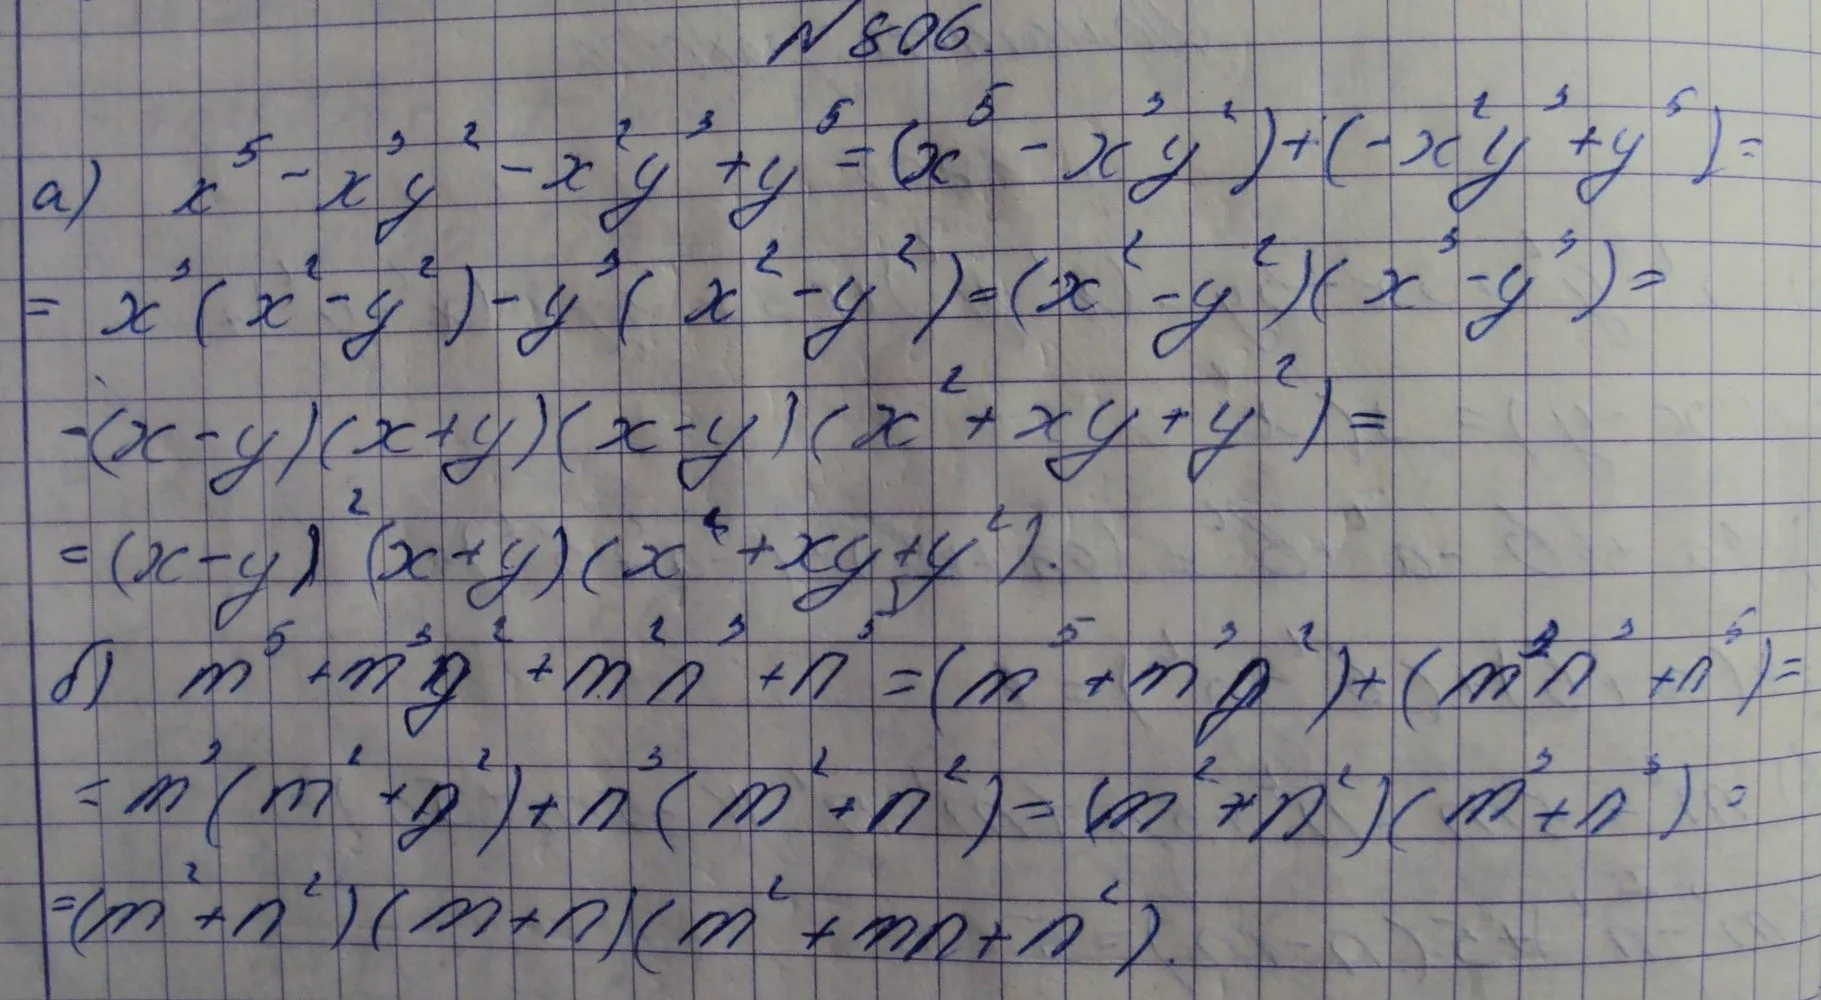 № 806.
а) x⁵ - x³y² - x²y³ + y⁵ = (x⁵ - x³y²) + (-x²y³ + y⁵) =
= x³(x² - y²) - y³(x² - y²) = (x² - y²)(x³ - y³) =
= (x - y)(x + y)(x - y)(x² + xy + y²) =
= (x - y)²(x + y)(x² + xy + y²).
б) m⁵ + m³n² + m²n³ + n⁵ = (m⁵ + m³n²) + (m²n³ + n⁵) =
= m³(m² + n²) + n³(m² + n²) = (m² + n²)(m³ + n³) =
= (m² + n²)(m + n)(m² + mn + n²).